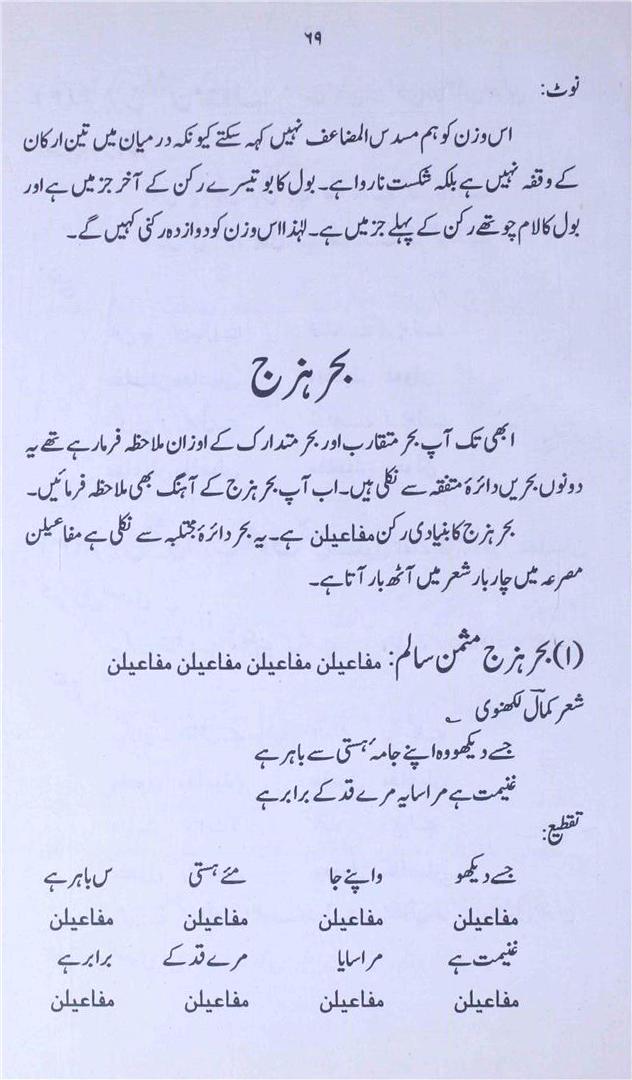 ۶۹
نوٹ:
اس وزن کو ہم مسدس المضاعف نہیں کہہ سکتے کیونکہ درمیان میں تین ارکان
کے وقفہ نہیں ہے بلکہ شکست ناروا ہے۔ بول کا بو تیسرے رکن کے آخر جز میں ہے اور
بول کا لام چوتھے رکن کے پہلے جز میں ہے۔ لہٰذا اس وزن کو دوازدہ رکنی کہیں گے۔
بحر ہزج
ابھی تک آپ بحر متقارب اور بحر متدارک کے اوزان ملاحظہ فرما رہے تھے یہ
دونوں بحریں دائرۂ متفقہ سے نکلی ہیں۔ اب آپ بحر ہزج کے آہنگ بھی ملاحظہ فرمائیں۔
بحر ہزج کا بنیادی رکن مفاعیلن ہے۔ یہ بحر دائرۂ مجتلبہ سے نکلی ہے مفاعیلن
مصرعہ میں چار بار شعر میں آٹھ بار آتا ہے۔
(۱) بحر ہزج مثمن سالم: مفاعیلن مفاعیلن مفاعیلن مفاعیلن
شعر کمالؔ لکھنوی ؎
جسے دیکھو وہ اپنے جامۂ ہستی سے باہر ہے
غنیمت ہے مرا سایہ مرے قد کے برابر ہے
تقطیع:
جسے دیکھو واپنے جا مئے ہستی س باہر ہے
مفاعیلن مفاعیلن مفاعیلن مفاعیلن
غنیمت ہے مرا سایا مرے قد کے برابر ہے
مفاعیلن مفاعیلن مفاعیلن مفاعیلن